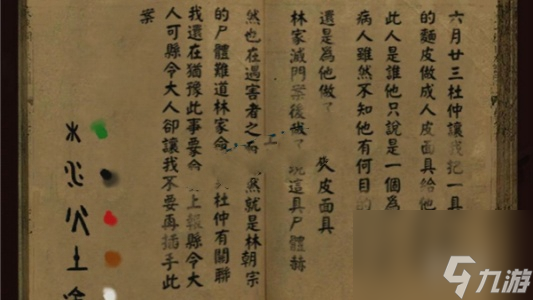 六月廿三杜仲讓我把一具
的麵皮做成人皮面具給他
此人是誰他只說是一個為
病人雖然不知他有何目
還是為他做了 皮面具
林家滅門案後 現這具尸體赫
然也在遇害者之 然就是林朝宗
的尸體難道林家命 杜仲有關聯
我還在猶豫此事要 上報縣令大
人可縣令大人卻讓我不要再插手此
案
木
水
火
土
金
九游